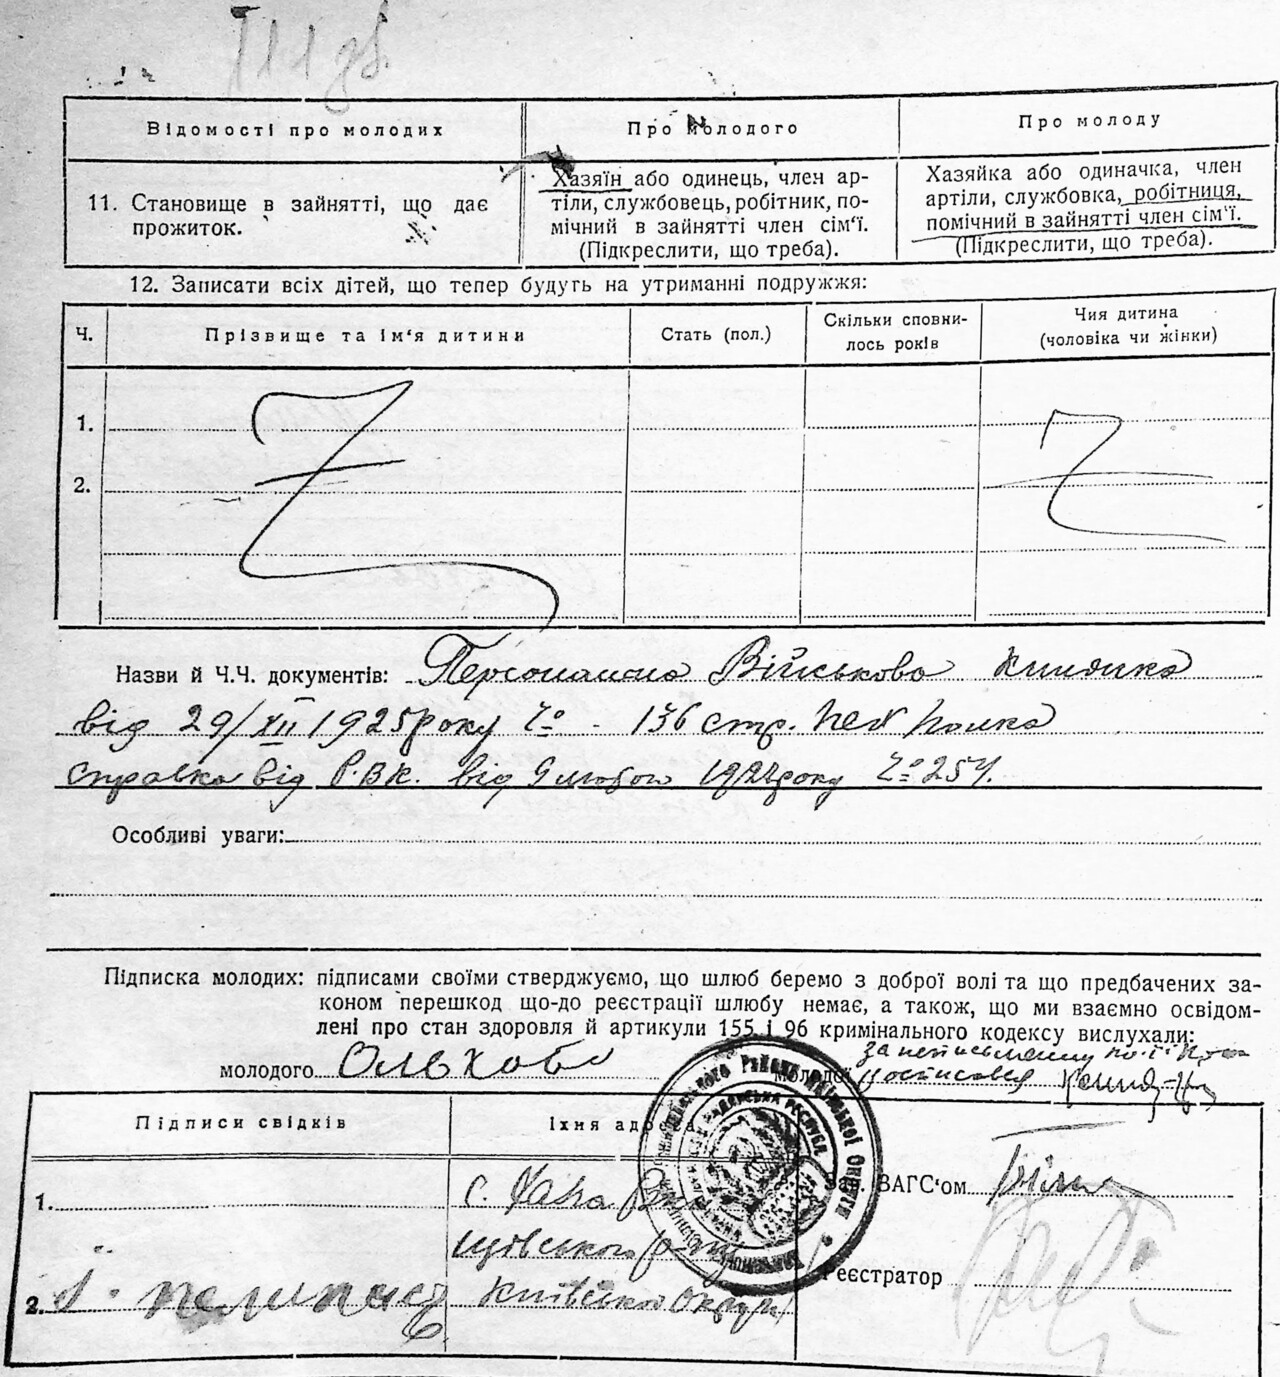 Відомості про молодих
Про молодого
Про молоду
11. Становище в зайнятті, що дає
прожиток.
Хазяїн або одинець, член ар-
тіли, службовець, робітник, по-
мічний в зайнятті член сім'ї.
(Підкреслити, що треба).
Хазяйка або одиначка, член
артіли, службовка, робітниця,
помічний в зайнятті член сім'ї.
(Підкреслити, що треба).
12. Записати всіх дітей, що тепер будуть на утриманні подружжя:
Ч.
Прізвище та ім'я дитини
Стать (пол.)
Скільки сповни-
лось років
Чия дитина
(чоловіка чи жінки)
1.
2.
Назви й Ч.Ч. документів: Персональна Військова книжка
від 29/XII 1925 року Ч° - 136 стр. полка
справка від Р.В.К. від 9 лютого року Ч° 257.
Особливі уваги:
Підписка молодих: підписами своїми стверджуємо, що шлюб беремо з доброї волі та що предбачених за-
коном перешкод що-до реєстрації шлюбу немає, а також, що ми взаємно освідом-
лені про стан здоровля й артикули 155 і 96 кримінального кодексу вислухали:
за неписьменну
молодого Ольхово молодої
Підписи свідків
Їхня адреса
Зав. ВАГС'ом
1.
с.
Реєстратор
2.
Київської Округи